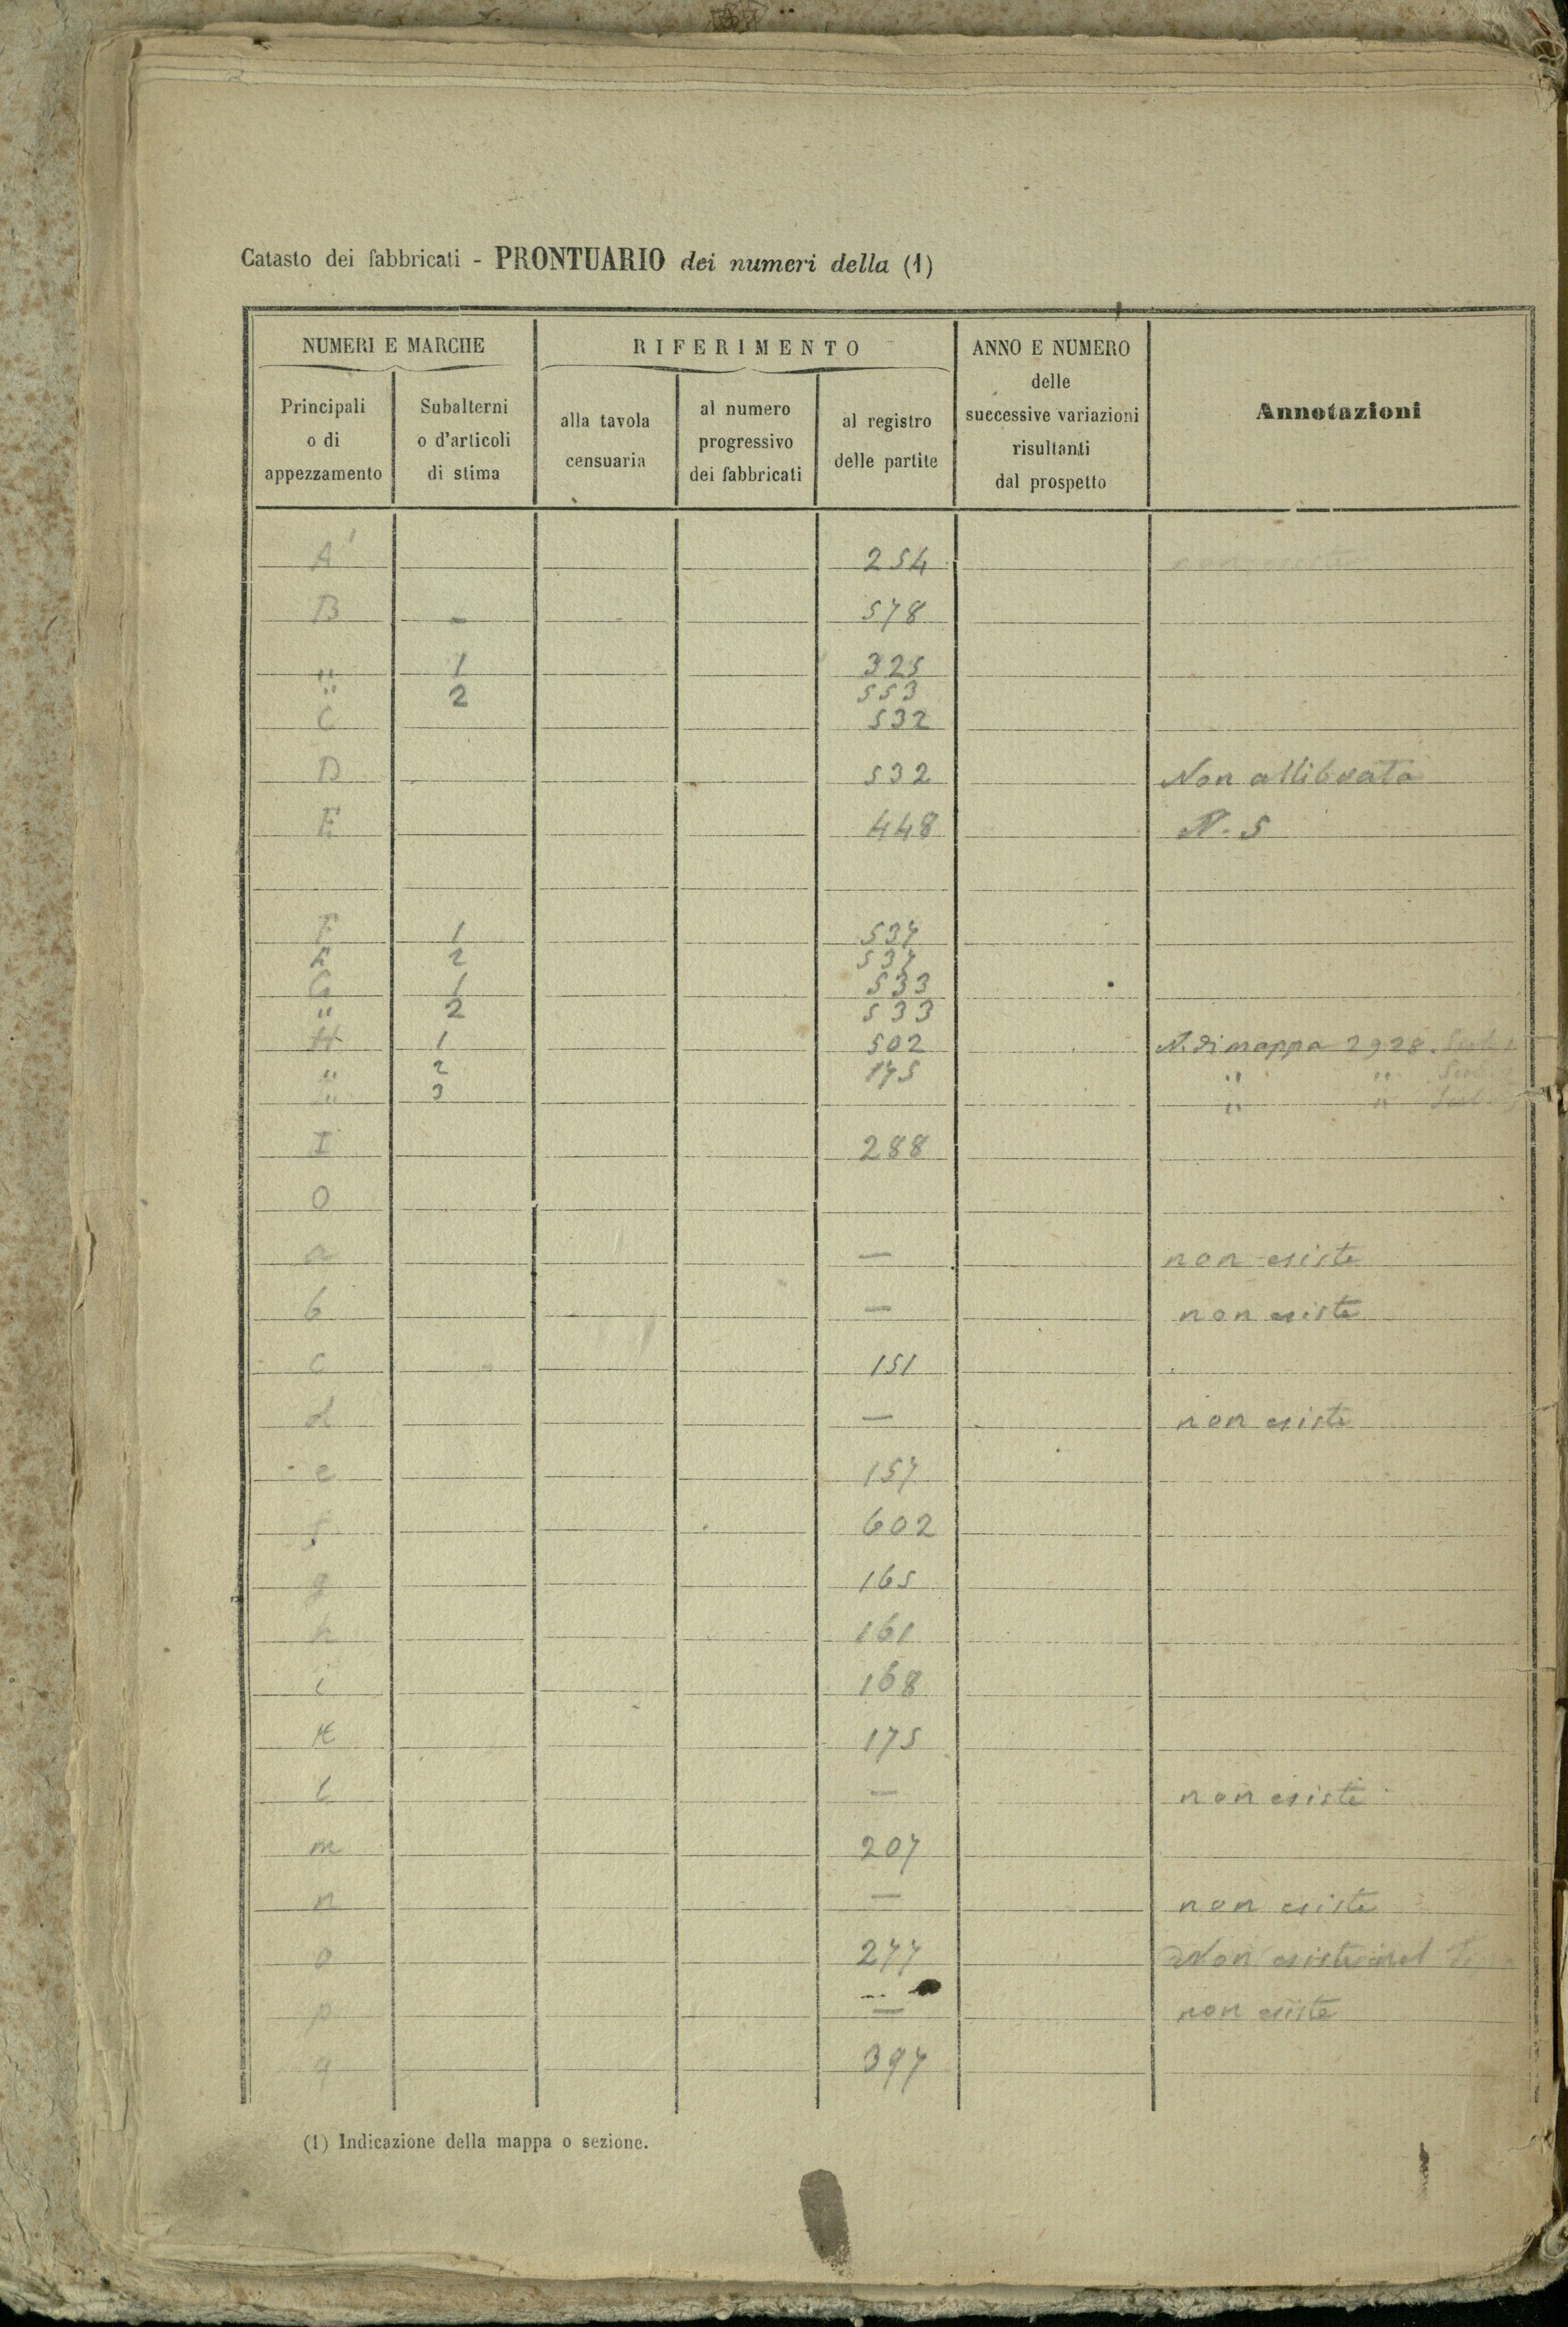 Catasto dei fabbricati - PRONTUARIO dei numeri della (1)
NUMERI E MARCHE
RIFERIMENTO
ANNO E NUMERO
delle
successive variazioni
risultanti
dal prospetto
Annotazioni
Principali
o di
appezzamento
Subalterni
o d'articoli
di stima
alla tavola
censuaria
al numero
progressivo
dei fabbricati
al registro
delle partite
A' 254
B - 578
" 1 325
" 2 553
C 532
D 532 Non allibrata
E 448 N. 5
F 1 537
F 2 537
G 1 533
" 2 533
H 1 502 N. di mappa 2928. Sub. 1
" 2 175 " " Sub. 2
" 3 " " Sub.
I 288
O
a — non esiste
b — non esiste
c 151
d — non esiste
e 157
f 602
g 165
h 161
i 168
K 175
l — non esiste
m 207
n — non esiste
o 277 Non esiste nel
p — non esiste
q 397
(1) Indicazione della mappa o sezione.